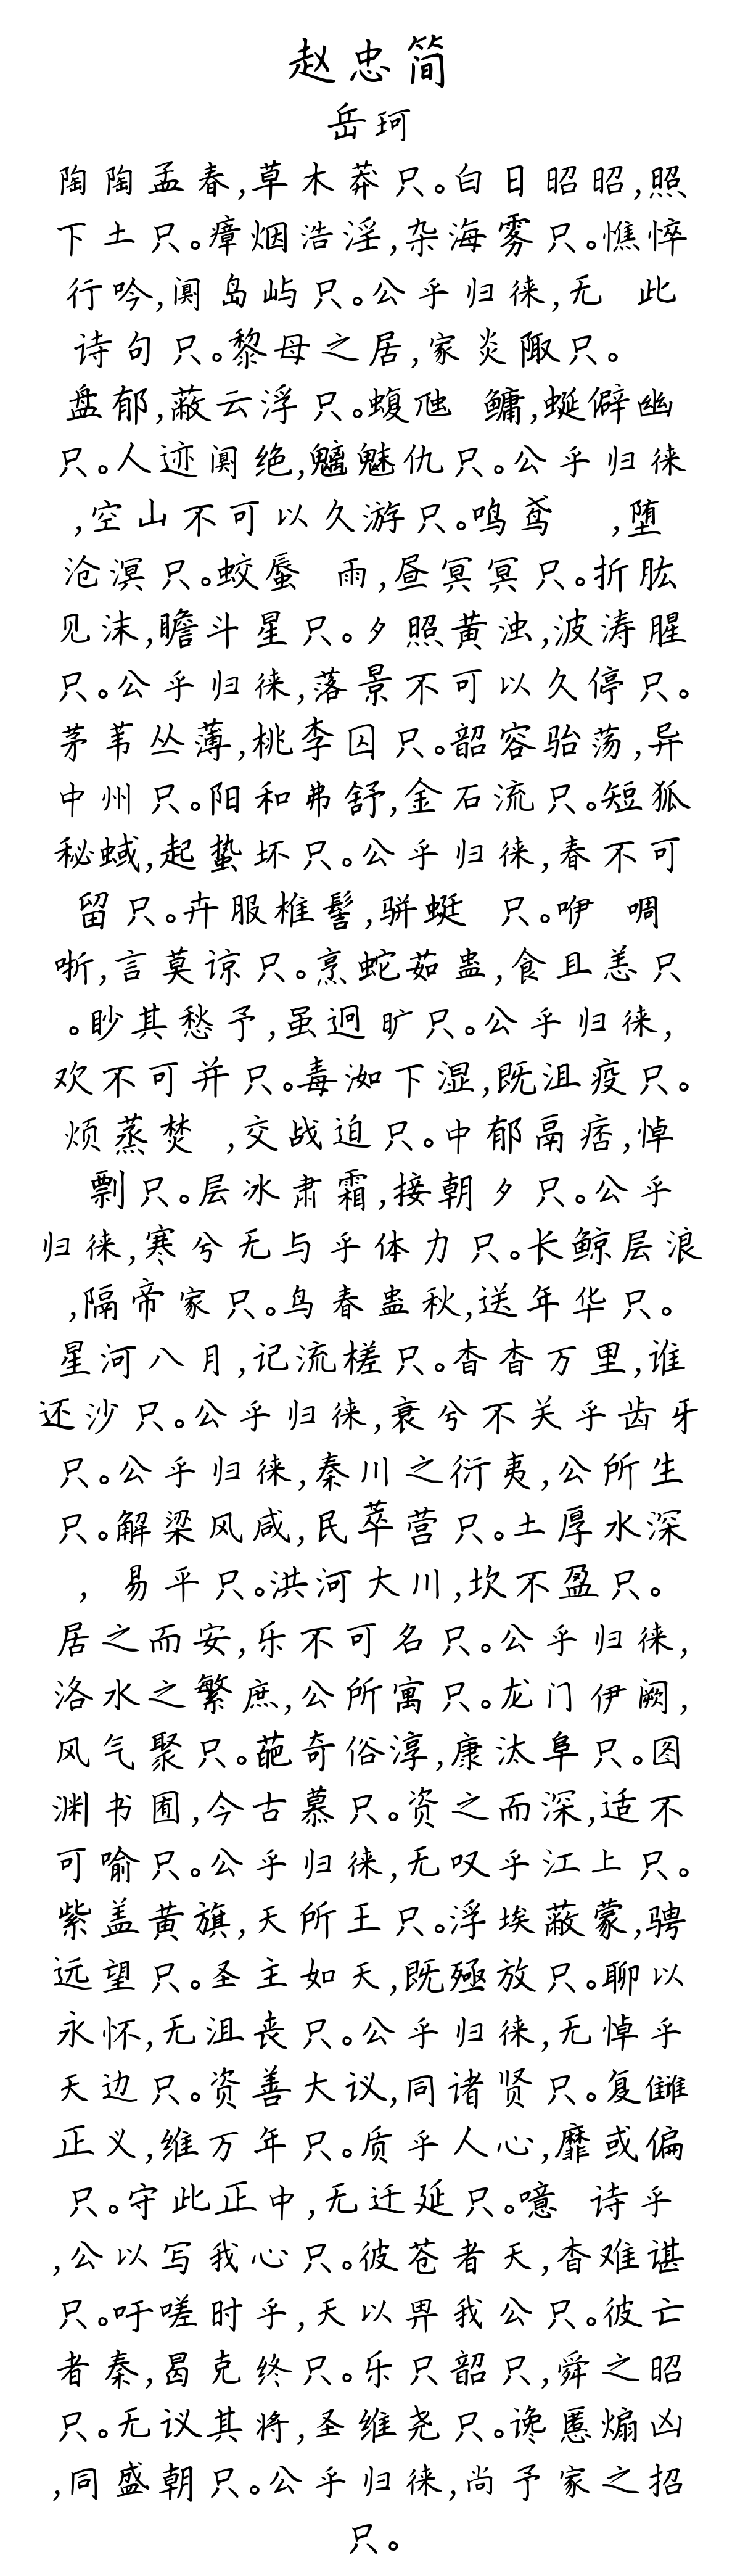 赵忠简
岳珂
陶陶孟春,草木莽只。白日昭昭,照
下土只。瘴烟浩淫,杂海雾只。憔悴
行吟,阒岛屿只。公乎归徕,无 此
诗句只。黎母之居,家炎陬只。
盘郁,蔽云浮只。蝮虺 鳙,蜒僻幽
只。人迹阒绝,魑魅仇只。公乎归徕
,空山不可以久游只。鸣鸢 ,堕
沧溟只。蛟蜃 雨,昼冥冥只。折肱
见沫,瞻斗星只。夕照黄浊,波涛腥
只。公乎归徕,落景不可以久停只。
茅苇丛薄,桃李囚只。韶容骀荡,异
中州只。阳和弗舒,金石流只。短狐
秘蜮,起蛰坏只。公乎归徕,春不可
留只。卉服椎髻,骈蜓 只。咿 啁
哳,言莫谅只。烹蛇茹蛊,食且恙只
。眇其愁予,虽迥旷只。公乎归徕,
欢不可并只。毒洳下湿,既沮疫只。
烦蒸焚 ,交战迫只。中郁鬲痞,悼
剽只。层冰肃霜,接朝夕只。公乎
归徕,寒兮无与乎体力只。长鲸层浪
,隔帝家只。鸟春蛊秋,送年华只。
星河八月,记流槎只。杳杳万里,谁
还沙只。公乎归徕,衰兮不关乎齿牙
只。公乎归徕,秦川之衍夷,公所生
只。解梁风咸,民萃营只。土厚水深
, 易平只。洪河大川,坎不盈只。
居之而安,乐不可名只。公乎归徕,
洛水之繁庶,公所寓只。龙门伊阙,
风气聚只。葩奇俗淳,康汰阜只。图
渊书圃,今古慕只。资之而深,适不
可喻只。公乎归徕,无叹乎江上只。
紫盖黄旗,天所王只。浮埃蔽蒙,骋
远望只。圣主如天,既殛放只。聊以
永怀,无沮丧只。公乎归徕,无悼乎
天边只。资善大议,同诸贤只。复雠
正义,维万年只。质乎人心,靡或偏
只。守此正中,无迁延只。噫 诗乎
,公以写我心只。彼苍者天,杳难谌
只。吁嗟时乎,天以畀我公只。彼亡
者秦,曷克终只。乐只韶只,舜之昭
只。无议其将,圣维尧只。谗慝煽凶
,同盛朝只。公乎归徕,尚予家之招
只。